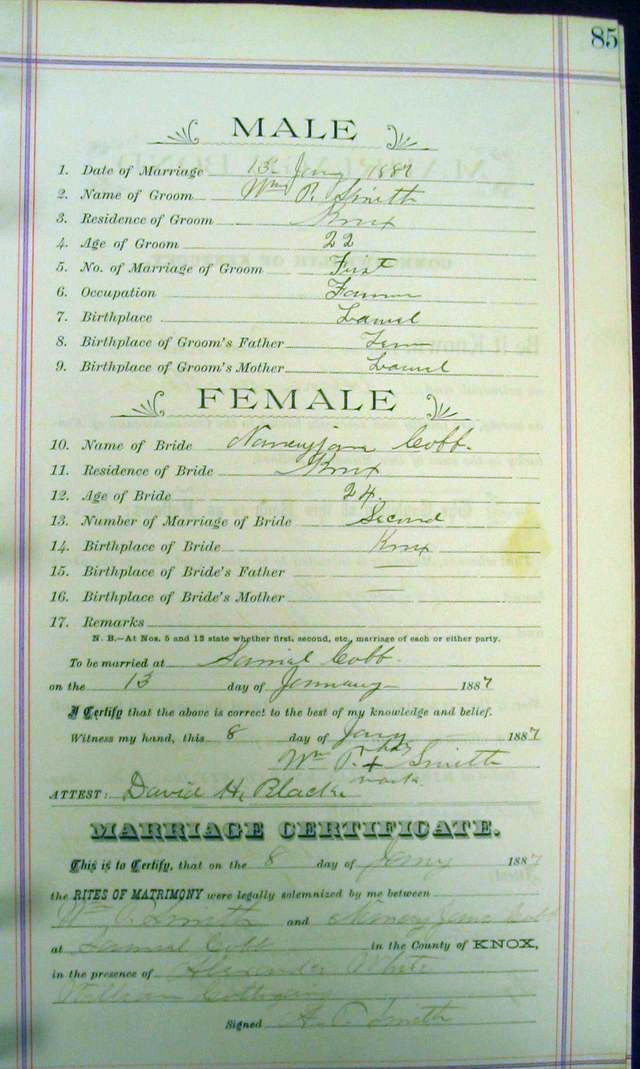 85
MALE
1. Date of Marriage 13 Jany 1887
2. Name of Groom Wm P. Smith
3. Residence of Groom Knox
4. Age of Groom 22
5. No. of Marriage of Groom First
6. Occupation Farmer
7. Birthplace Laurel
8. Birthplace of Groom's Father Tenn
9. Birthplace of Groom's Mother Laurel
FEMALE
10. Name of Bride Nancy Jane Cobb.
11. Residence of Bride Knox
12. Age of Bride 24.
13. Number of Marriage of Bride Second
14. Birthplace of Bride Knox
15. Birthplace of Bride's Father —
16. Birthplace of Bride's Mother —
17. Remarks
N. B.—At Nos. 5 and 13 state whether first, second, etc., marriage of each or either party.
To be married at Samuel Cobb.
on the 13 day of January 1887
I Certify that the above is correct to the best of my knowledge and belief.
Witness my hand, this 8 day of Jany 1887
Wm P. his + mark Smith
ATTEST: David H. Black
MARRIAGE CERTIFICATE.
This is to Certify, that on the 8 day of Jany 1887
the RITES OF MATRIMONY were legally solemnized by me between
Wm P. Smith and Nancy Jane Cobb
at Samuel Cobb in the County of KNOX,
in the presence of Alexander White
William
Signed Smith